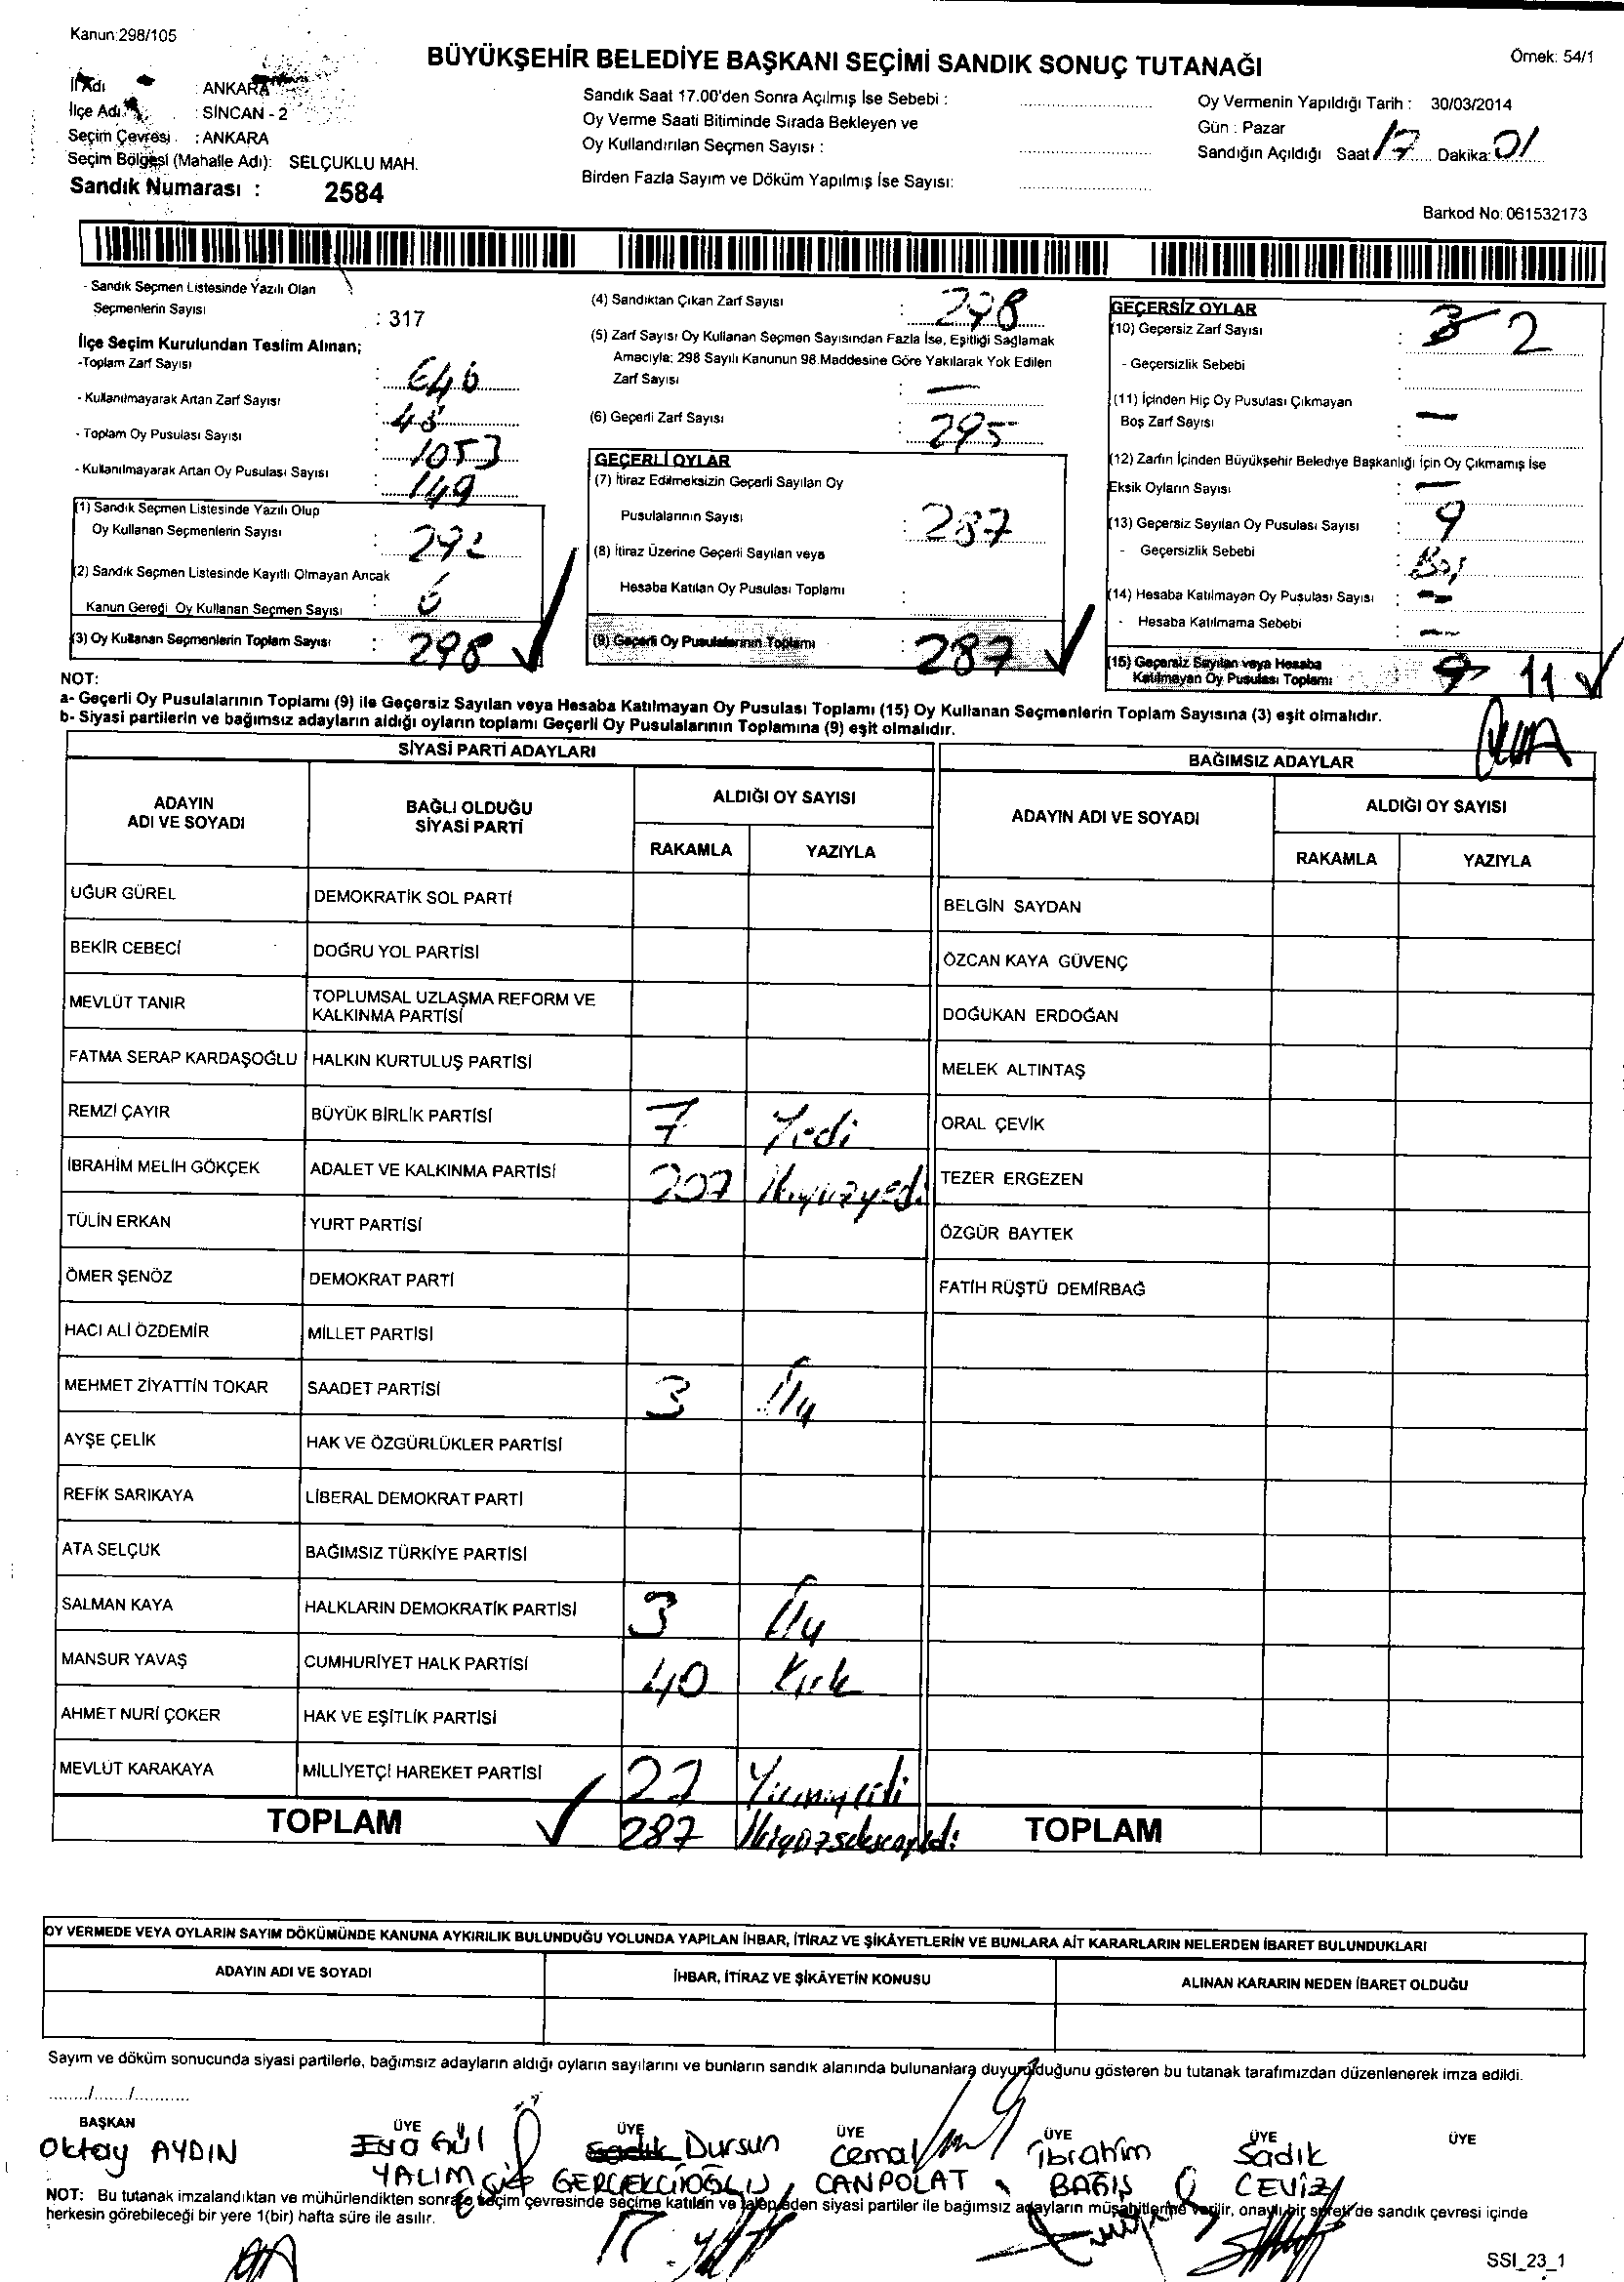 Kanun:298/105
BÜYÜKŞEHİR BELEDİYE BAŞKANI SEÇİMİ SANDIK SONUÇ TUTANAĞI
Örnek: 54/1
İl Adı : ANKARA
İlçe Adı : SİNCAN - 2
Seçim Çevresi : ANKARA
Seçim Bölgesi (Mahalle Adı): SELÇUKLU MAH.
Sandık Numarası : 2584
Sandık Saat 17.00'den Sonra Açılmış İse Sebebi :
Oy Verme Saati Bitiminde Sırada Bekleyen ve
Oy Kullandırılan Seçmen Sayısı :
Birden Fazla Sayım ve Döküm Yapılmış İse Sayısı:
Oy Vermenin Yapıldığı Tarih : 30/03/2014
Gün : Pazar
Sandığın Açıldığı Saat 17 Dakika: 01
Barkod No: 061532173
- Sandık Seçmen Listesinde Yazılı Olan
Seçmenlerin Sayısı : 317
İlçe Seçim Kurulundan Teslim Alınan;
-Toplam Zarf Sayısı : 646
- Kullanılmayarak Artan Zarf Sayısı : 48
- Toplam Oy Pusulası Sayısı : 1053
- Kullanılmayarak Artan Oy Pusulası Sayısı : 149
(1) Sandık Seçmen Listesinde Yazılı Olup
Oy Kullanan Seçmenlerin Sayısı : 292
(2) Sandık Seçmen Listesinde Kayıtlı Olmayan Ancak
Kanun Gereği Oy Kullanan Seçmen Sayısı : 6
(3) Oy Kullanan Seçmenlerin Toplam Sayısı : 298
(4) Sandıktan Çıkan Zarf Sayısı : 298
(5) Zarf Sayısı Oy Kullanan Seçmen Sayısından Fazla İse, Eşitliği Sağlamak
Amacıyla; 298 Sayılı Kanunun 98.Maddesine Göre Yakılarak Yok Edilen
Zarf Sayısı : —
(6) Geçerli Zarf Sayısı : 295
GEÇERLİ OYLAR
(7) İtiraz Edilmeksizin Geçerli Sayılan Oy
Pusulalarının Sayısı : 287
(8) İtiraz Üzerine Geçerli Sayılan veya
Hesaba Katılan Oy Pusulası Toplamı :
(9) Geçerli Oy Pusulalarının Toplamı : 287
GEÇERSİZ OYLAR
(10) Geçersiz Zarf Sayısı : 3 2
- Geçersizlik Sebebi :
(11) İçinden Hiç Oy Pusulası Çıkmayan
Boş Zarf Sayısı : —
(12) Zarfın İçinden Büyükşehir Belediye Başkanlığı İçin Oy Çıkmamış İse
Eksik Oyların Sayısı : —
(13) Geçersiz Sayılan Oy Pusulası Sayısı : 9
- Geçersizlik Sebebi : Boş
(14) Hesaba Katılmayan Oy Pusulası Sayısı : —
- Hesaba Katılmama Sebebi : —
(15) Geçersiz Sayılan veya Hesaba
Katılmayan Oy Pusulası Toplamı : 9 11
NOT:
a- Geçerli Oy Pusulalarının Toplamı (9) ile Geçersiz Sayılan veya Hesaba Katılmayan Oy Pusulası Toplamı (15) Oy Kullanan Seçmenlerin Toplam Sayısına (3) eşit olmalıdır.
b- Siyasi partilerin ve bağımsız adayların aldığı oyların toplamı Geçerli Oy Pusulalarının Toplamına (9) eşit olmalıdır.
SİYASİ PARTİ ADAYLARI
BAĞIMSIZ ADAYLAR
ADAYIN ADI VE SOYADI
BAĞLI OLDUĞU SİYASİ PARTİ
ALDIĞI OY SAYISI
RAKAMLA YAZIYLA
ADAYIN ADI VE SOYADI
ALDIĞI OY SAYISI
RAKAMLA YAZIYLA
UĞUR GÜREL DEMOKRATİK SOL PARTİ BELGİN SAYDAN
BEKİR CEBECİ DOĞRU YOL PARTİSİ ÖZCAN KAYA GÜVENÇ
MEVLÜT TANIR TOPLUMSAL UZLAŞMA REFORM VE KALKINMA PARTİSİ DOĞUKAN ERDOĞAN
FATMA SERAP KARDAŞOĞLU HALKIN KURTULUŞ PARTİSİ MELEK ALTINTAŞ
REMZİ ÇAYIR BÜYÜK BİRLİK PARTİSİ 7 Yedi ORAL ÇEVİK
İBRAHİM MELİH GÖKÇEK ADALET VE KALKINMA PARTİSİ 207 İkiyüzyedi TEZER ERGEZEN
TÜLİN ERKAN YURT PARTİSİ ÖZGÜR BAYTEK
ÖMER ŞENÖZ DEMOKRAT PARTİ FATİH RÜŞTÜ DEMİRBAĞ
HACI ALİ ÖZDEMİR MİLLET PARTİSİ
MEHMET ZİYATTİN TOKAR SAADET PARTİSİ 3 Üç
AYŞE ÇELİK HAK VE ÖZGÜRLÜKLER PARTİSİ
REFİK SARIKAYA LİBERAL DEMOKRAT PARTİ
ATA SELÇUK BAĞIMSIZ TÜRKİYE PARTİSİ
SALMAN KAYA HALKLARIN DEMOKRATİK PARTİSİ 3 Üç
MANSUR YAVAŞ CUMHURİYET HALK PARTİSİ 40 Kırk
AHMET NURİ ÇOKER HAK VE EŞİTLİK PARTİSİ
MEVLÜT KARAKAYA MİLLİYETÇİ HAREKET PARTİSİ 27 Yirmiyedi
TOPLAM 287 İkiyüzseksenyedi TOPLAM
OY VERMEDE VEYA OYLARIN SAYIM DÖKÜMÜNDE KANUNA AYKIRILIK BULUNDUĞU YOLUNDA YAPILAN İHBAR, İTİRAZ VE ŞİKÂYETLERİN VE BUNLARA AİT KARARLARIN NELERDEN İBARET BULUNDUKLARI
ADAYIN ADI VE SOYADI İHBAR, İTİRAZ VE ŞİKÂYETİN KONUSU ALINAN KARARIN NEDEN İBARET OLDUĞU
Sayım ve döküm sonucunda siyasi partilerle, bağımsız adayların aldığı oyların sayılarını ve bunların sandık alanında bulunanlara duyurulduğunu gösteren bu tutanak tarafımızdan düzenlenerek imza edildi.
......../......./...........
BAŞKAN ÜYE ÜYE ÜYE ÜYE ÜYE ÜYE
Oktay AYDIN Esra Gül Sadık Dursun Cemal İbrahim Sadık
YALIM GERÇEKCİOĞLU CANPOLAT BAĞIŞ CEVİZ
NOT: Bu tutanak imzalandıktan ve mühürlendikten sonra seçim çevresinde seçime katılan ve talep eden siyasi partiler ile bağımsız adayların müşahitlerine verilir, onaylı bir sureti de sandık çevresi içinde
herkesin görebileceği bir yere 1(bir) hafta süre ile asılır.
SSI_23_1